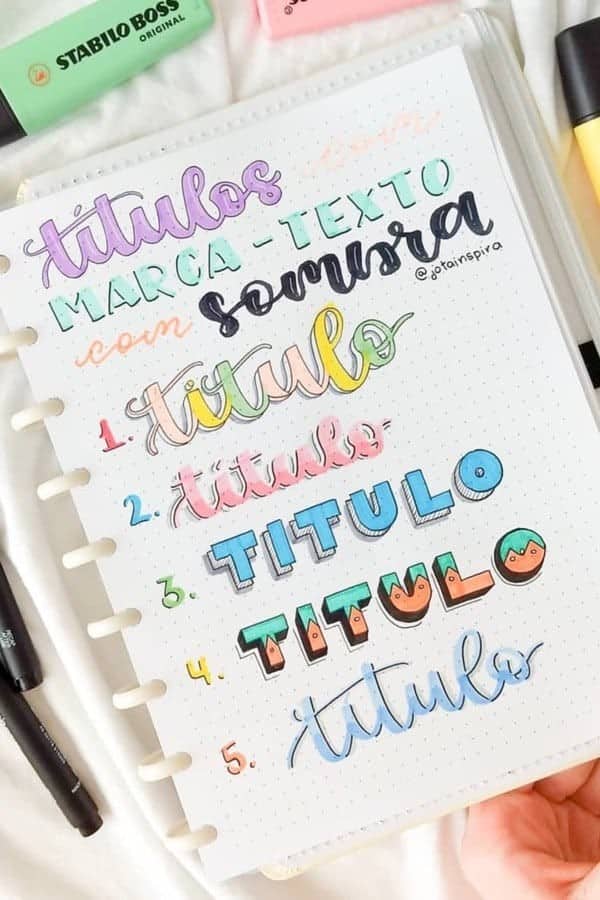 STABILO BOSS
ORIGINAL
títulos com
MARCA-TEXTO
com sombra
@jotainspira
1. titulo
2. título
3. TITULO
4. TITULO
5. titulo